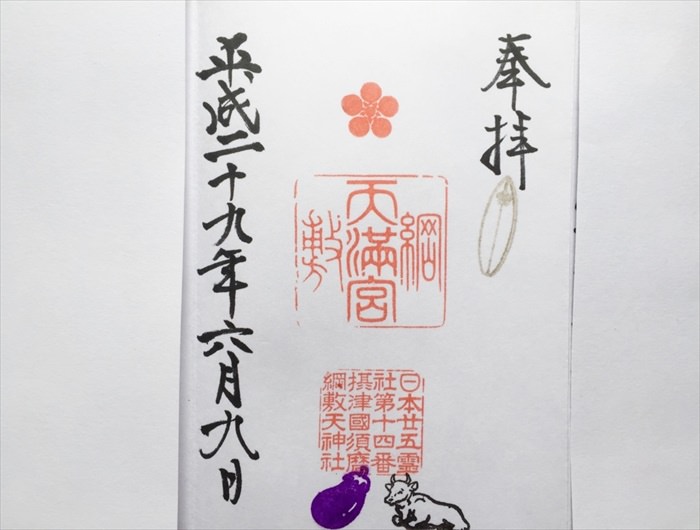 奉拝
綱敷天満宮
日本廿五霊
社第十四番
摂津國須磨
綱敷天神社
平成二十九年六月九日